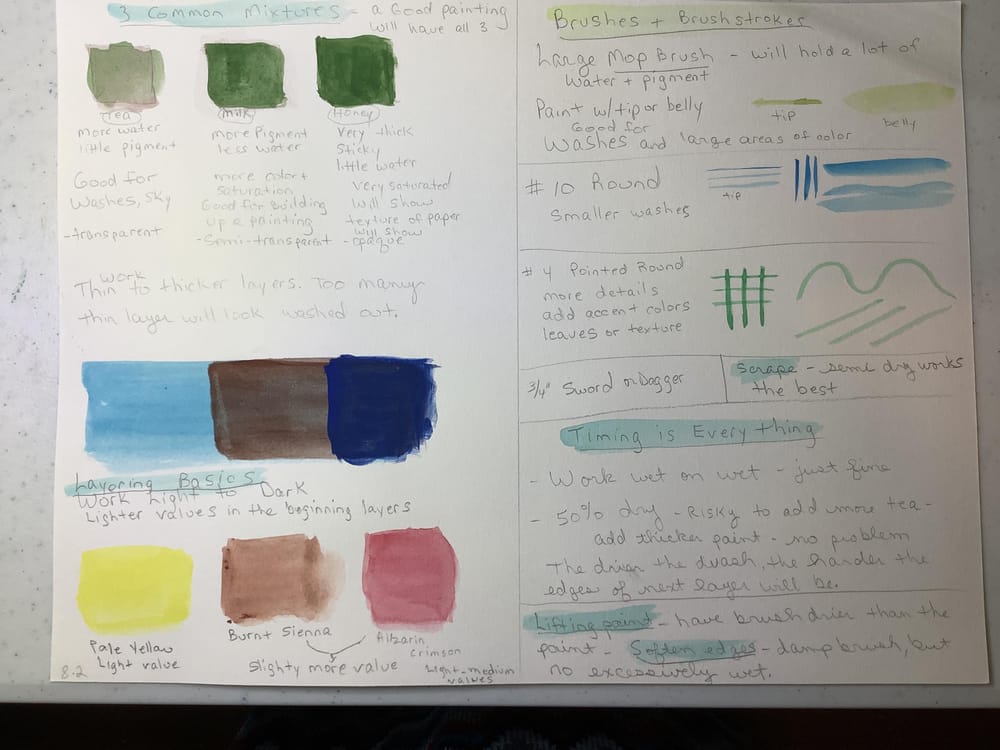 3 Common Mixtures - a Good painting
will have all 3
Tea
more water
little pigment
Good for
Washes, Sky
-transparent
Milk
more Pigment
less water
more color +
saturation
Good for Building
up a painting
-Semi-transparent
Honey
Very thick
Sticky
little water
Very saturated
will show
texture of paper
will show
-opaque
work
Thin to thicker layers. Too many
thin layer will look washed out.
Layoring Basics
Work Light to Dark
Lighter values in the beginning layers
Pale Yellow
Light value
Burnt Sienna
Alizarin
Crimson
Slighty more value
Light-medium
values
8.2
Brushes + Brushstrokes
Large Mop Brush - will hold a lot of
water + pigment
Paint w/tip or belly
Good for
washes and large areas of color
tip
belly
# 10 Round
Smaller washes
tip
# 4 Pointed Round
more details
add accent colors
leaves or texture
3/4" Sword or Dagger
Scrape - semi dry works
the best
Timing is Every thing
- Work wet on wet - just fine
- 50% dry - Risky to add more tea -
add thicker paint - no problem
The drier the wash, the harder the
edges of next layer will be.
Lifting paint - have brush drier than the
paint - Soften edges - damp brush, but
no excessively wet.